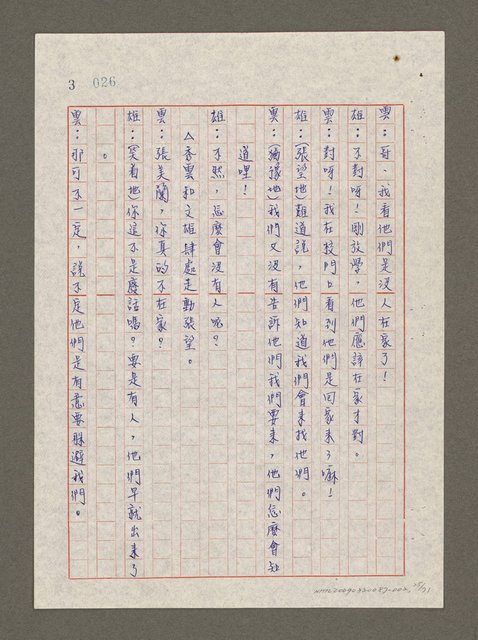 3 026
雲：哥、我看他們是沒人在家了！
雄：不對呀！剛放學，他們應該在家才對。
雲：對呀！我在校門口看到他們是回家來了嘛！
雄：(張望地)難道說，他們知道我們會來找他們。
雲：(猶豫地)我們又沒有告訴他們我們要來，他們怎麼會知
道哩！
雄：不然，怎麼會沒有人呢？
△秀雲和文雄肆處走動張望。
雲：張美蘭，你真的不在家？
雄：(笑着地)你這不是廢話嗎？要是有人，他們早就出來了
。
雲：那可不一定，說不定他們是有意要躲避我們。